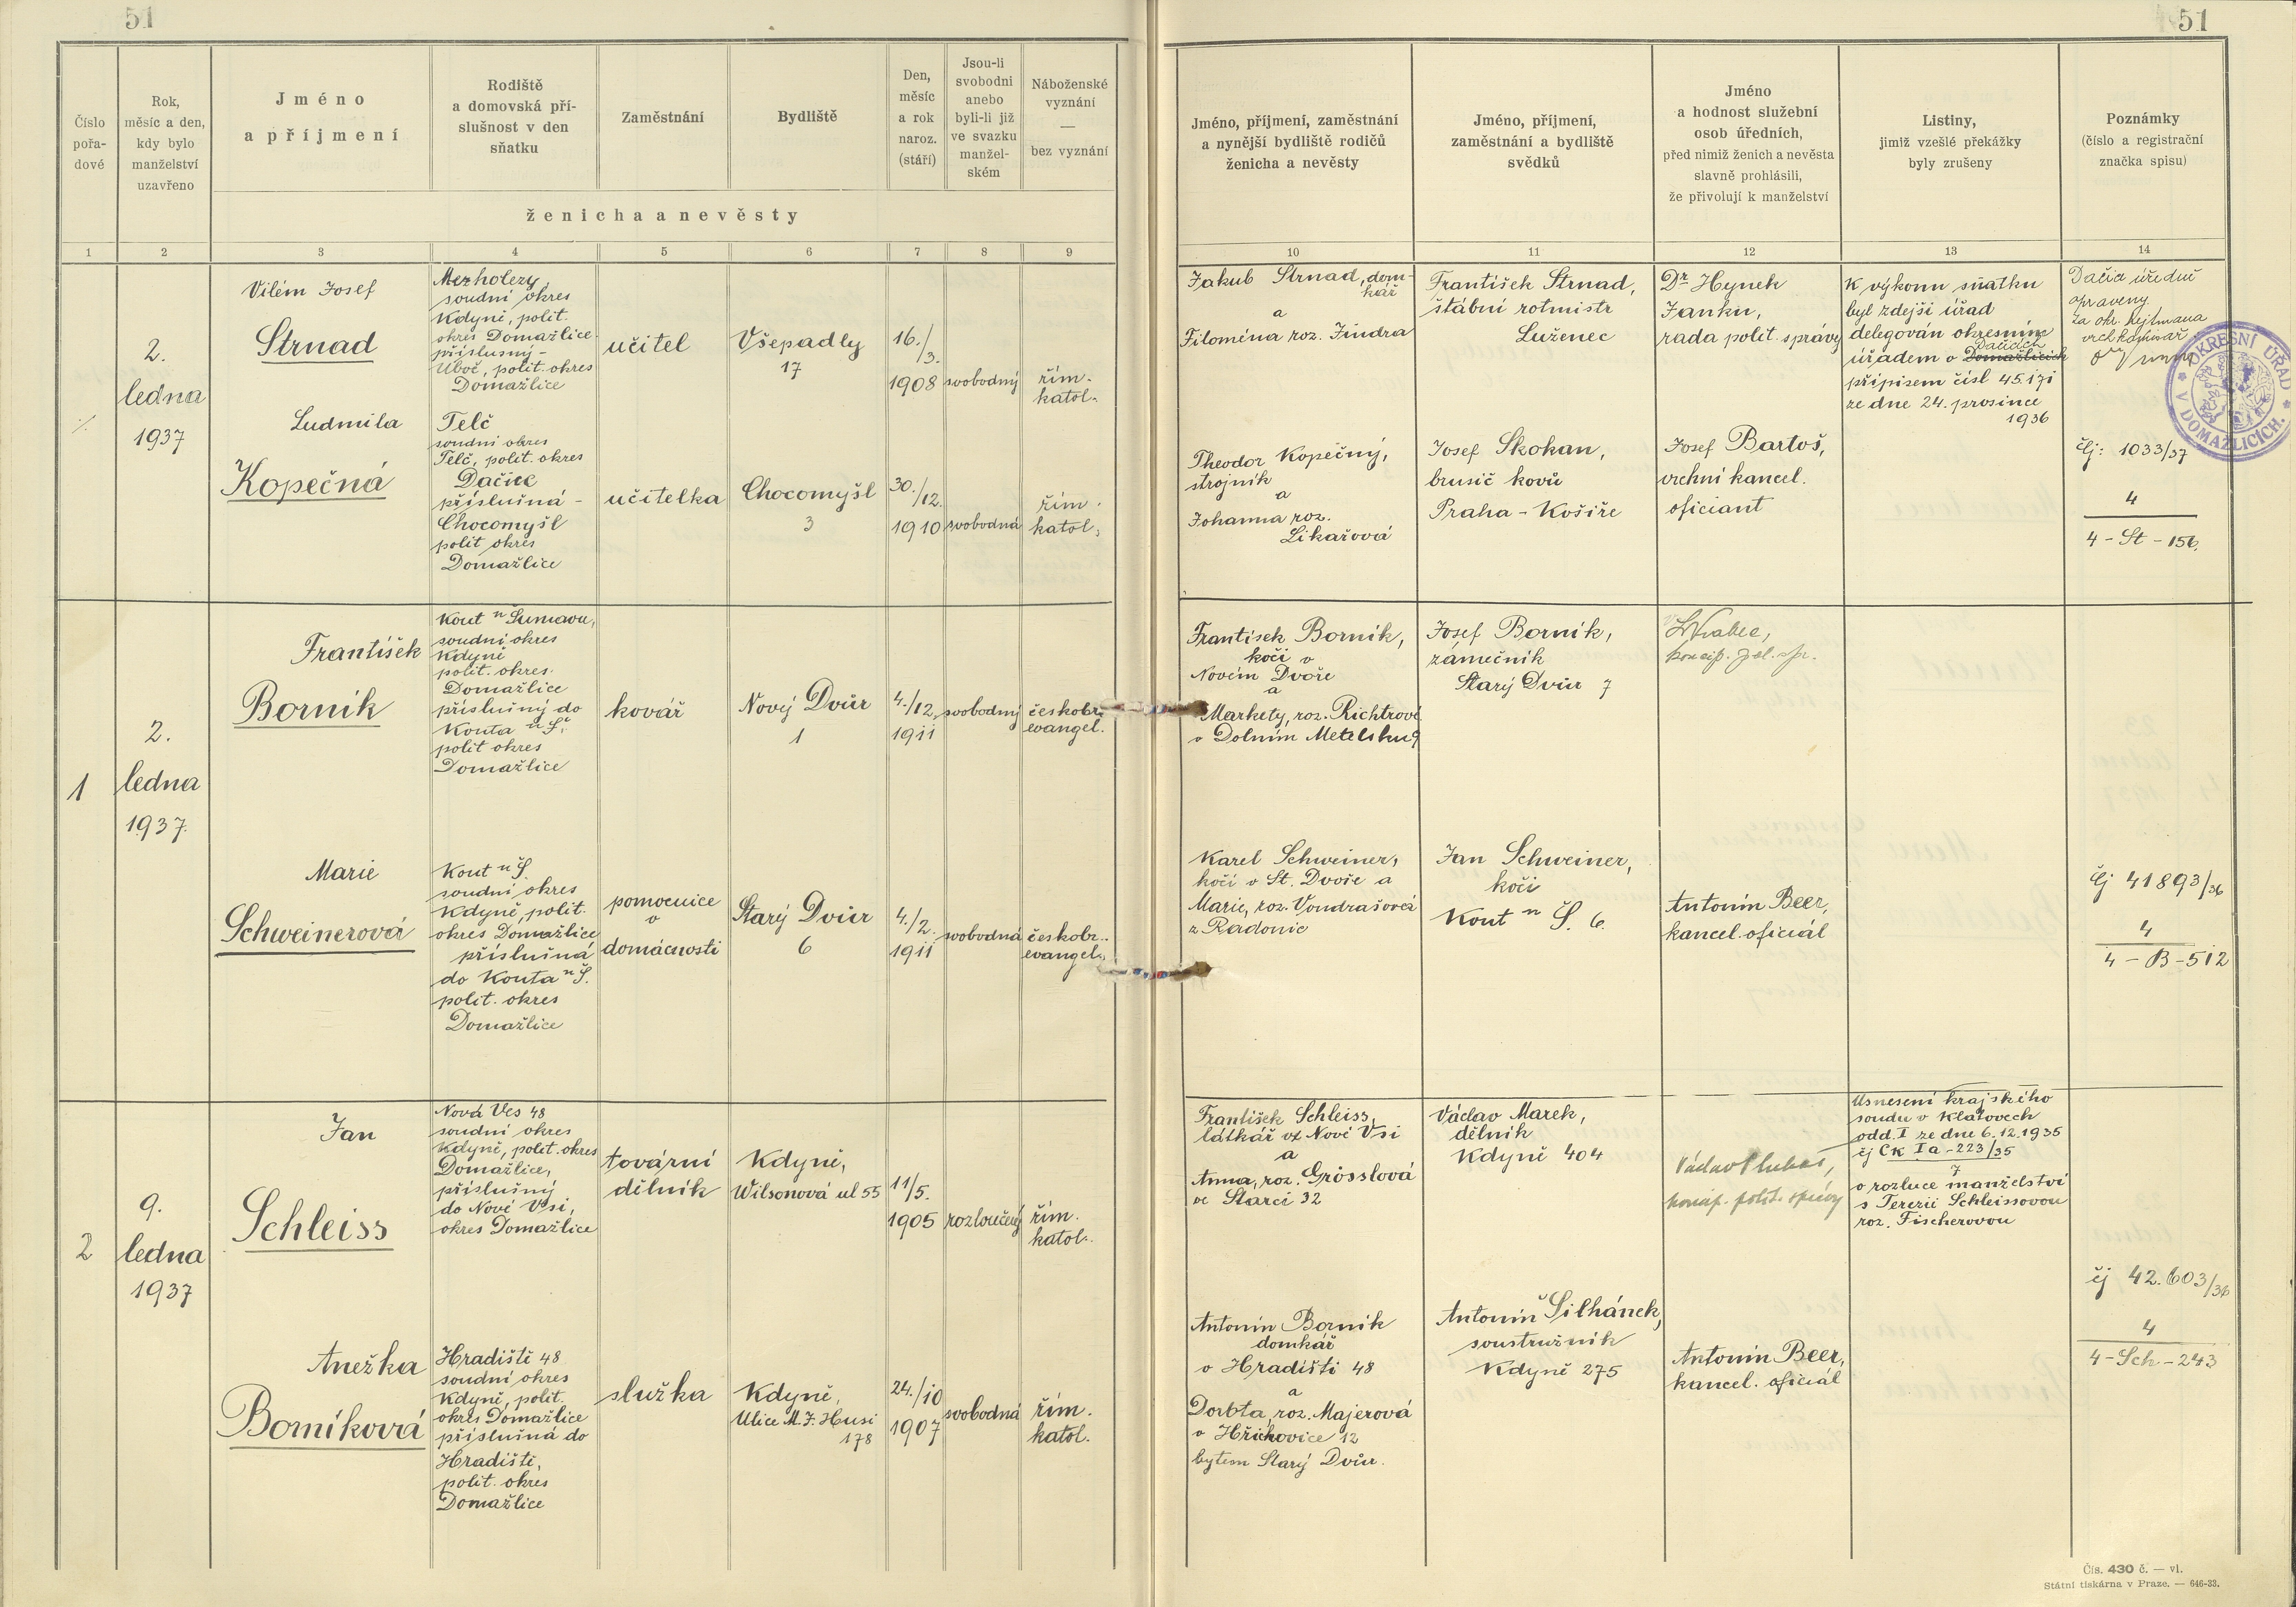 51
51
Číslo
pořa-
dové
Rok,
měsíc a den,
kdy bylo
manželství
uzavřeno
Jméno
a příjmení
Rodiště
a domovská pří-
slušnost v den
sňatku
Zaměstnání
Bydliště
Den,
měsíc
a rok
naroz.
(stáří)
Jsou-li
svobodni
anebo
byli-li již
ve svazku
manžel-
ském
Náboženské
vyznání
—
bez vyznání
ženicha a nevěsty
Jméno, příjmení, zaměstnání
a nynější bydliště rodičů
ženicha a nevěsty
Jméno, příjmení,
zaměstnání a bydliště
svědků
Jméno
a hodnost služební
osob úředních,
před nimiž ženich a nevěsta
slavně prohlásili,
že přivolují k manželství
Listiny,
jimiž vzešlé překážky
byly zrušeny
Poznámky
(číslo a registrační
značka spisu)
1 2 3 4 5 6 7 8 9 10 11 12 13 14
2.
ledna
1937
Vilém Josef
Strnad
Mezholezy,
soudní okres
Kdyně, polit.
okres Domažlice
příslušný -
Úboč, polit. okres
Domažlice
učitel
Všepadly
17
16./3.
1908
svobodný
řím.
katol.
Jakub Strnad, dom-
kář
a
Filoména roz. Jindra
František Strnad,
štábní rotmistr
Luženec
Dr Hynek
Janku,
rada polit. správy
K výkonu sňatku
byl zdejší úřad
delegován okresním
Dačicích
úřadem v Domažlicích
přípisem čísl 45.171
ze dne 24. prosince
1936
Dačia úředně
opraveny.
Za okr. hejtmana
vrch. komisař
OKRESNÍ ÚŘAD
V DOMAŽLICÍCH
Ludmila
Kopečná
Telč
soudní okres
Telč, polit. okres
Dačice
příslušná -
Chocomyšl
polit okres
Domažlice
učitelka
Chocomyšl
3
30./12.
1910
svobodná
řím.
katol.
Theodor Kopečný,
strojník
a
Johanna roz.
Likařová
Josef Skokan,
brusič kovů
Praha - Košíře
Josef Bartoš,
vrchní kancel.
oficiant
čj: 1033/37
4
4 - St - 156.
1
2.
ledna
1937.
František
Borník
Kout n Šumavou,
soudní okres
Kdyně
polit. okres
Domažlice
příslušný do
Kouta n Š.
polit okres
Domažlice
kovář
Nový Dvůr
1
4./12.
1911
svobodný
českobr.
evangel.
František Borník,
kočí v
Novém Dvoře
a
Markety, roz. Richtrové
v Dolním Metelsku 9
Josef Borník,
zámečník
Starý Dvůr 7
Marie
Schweinerová
Kout n Š.
soudní okres
Kdyně, polit.
okres Domažlice
příslušná
do Kouta n Š.
polit. okres
Domažlice
pomocnice
v
domácnosti
Starý Dvůr
6
4./2.
1911
svobodná
českobr.
evangel.
Karel Schweiner,
kočí v St. Dvoře a
Marie, roz. Vondrašová
z Radonic
Jan Schweiner,
kočí
Kout n Š. 6.
Antonín Beer,
kancel. oficiál
čj 41893/36
4
4 - B - 512
2
9.
ledna
1937
Jan
Schleiss
Nová Ves 48
soudní okres
Kdyně, polit. okres
Domažlice,
příslušný
do Nové Vsi,
okres Domažlice
tovární
dělník
Kdyně,
Wilsonová ul 55
11/5.
1905
rozloučený
řím.
katol.
František Schleiss,
látkář v Nové Vsi
a
Anna, roz. Grösslová
ve Starci 32
Václav Marek,
dělník
Kdyně 404
koncip. polit. správy
Usnesení krajského
soudu v Klatovech
odd. I ze dne 6.12.1935
čj Ck Ia - 223/35
7
o rozluce manželství
s Terezií Schleissovou
roz. Fischerovou
Anežka
Borníková
Hradiště 48
soudní okres
Kdyně, polit.
okres Domažlice
příslušná do
Hradiště,
polit. okres
Domažlice
služka
Kdyně,
Ulice M. J. Husi
178
24./10
1907
svobodná
řím.
katol.
Antonín Borník
domkář
v Hradišti 48
a
Dorota, roz. Majerová
v Hříchovice 12
bytem Starý Dvůr.
Antonín Šilhánek,
soustružník
Kdyně 275
Antonín Beer,
kancel. oficiál
čj 42.603/36
4
4 - Sch - 243
Čís. 430 č. — vl.
Státní tiskárna v Praze. — 646-33.